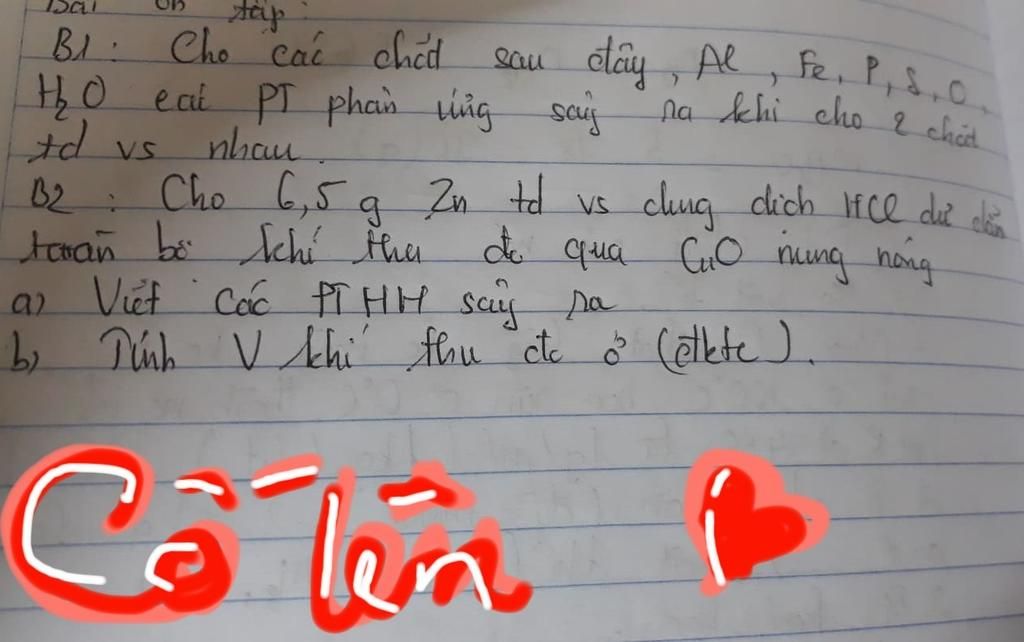 Bài ôn tập:
B1: Cho các chất sau đây, Al, Fe, P, S, O,
H₂O PT phản ứng sảy ra khi cho 2 chất
td vs nhau.
B2: Cho 6,5 g Zn td vs dung dich HCl dư dẫn
toàn bộ khí thu đc qua CuO nung nóng
a) Viết các PTHH sảy ra
b) Tính V khí thu đc ở (đktc).
Cố lên